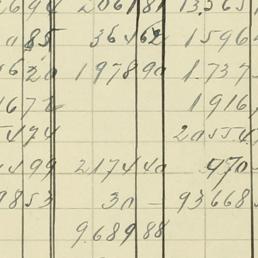 694 206181 13.565
085 36462 1596
620 197890 1.737
1672 1916
5474 20554
499 217440 970-
9853 30 - 93668
9.689 88